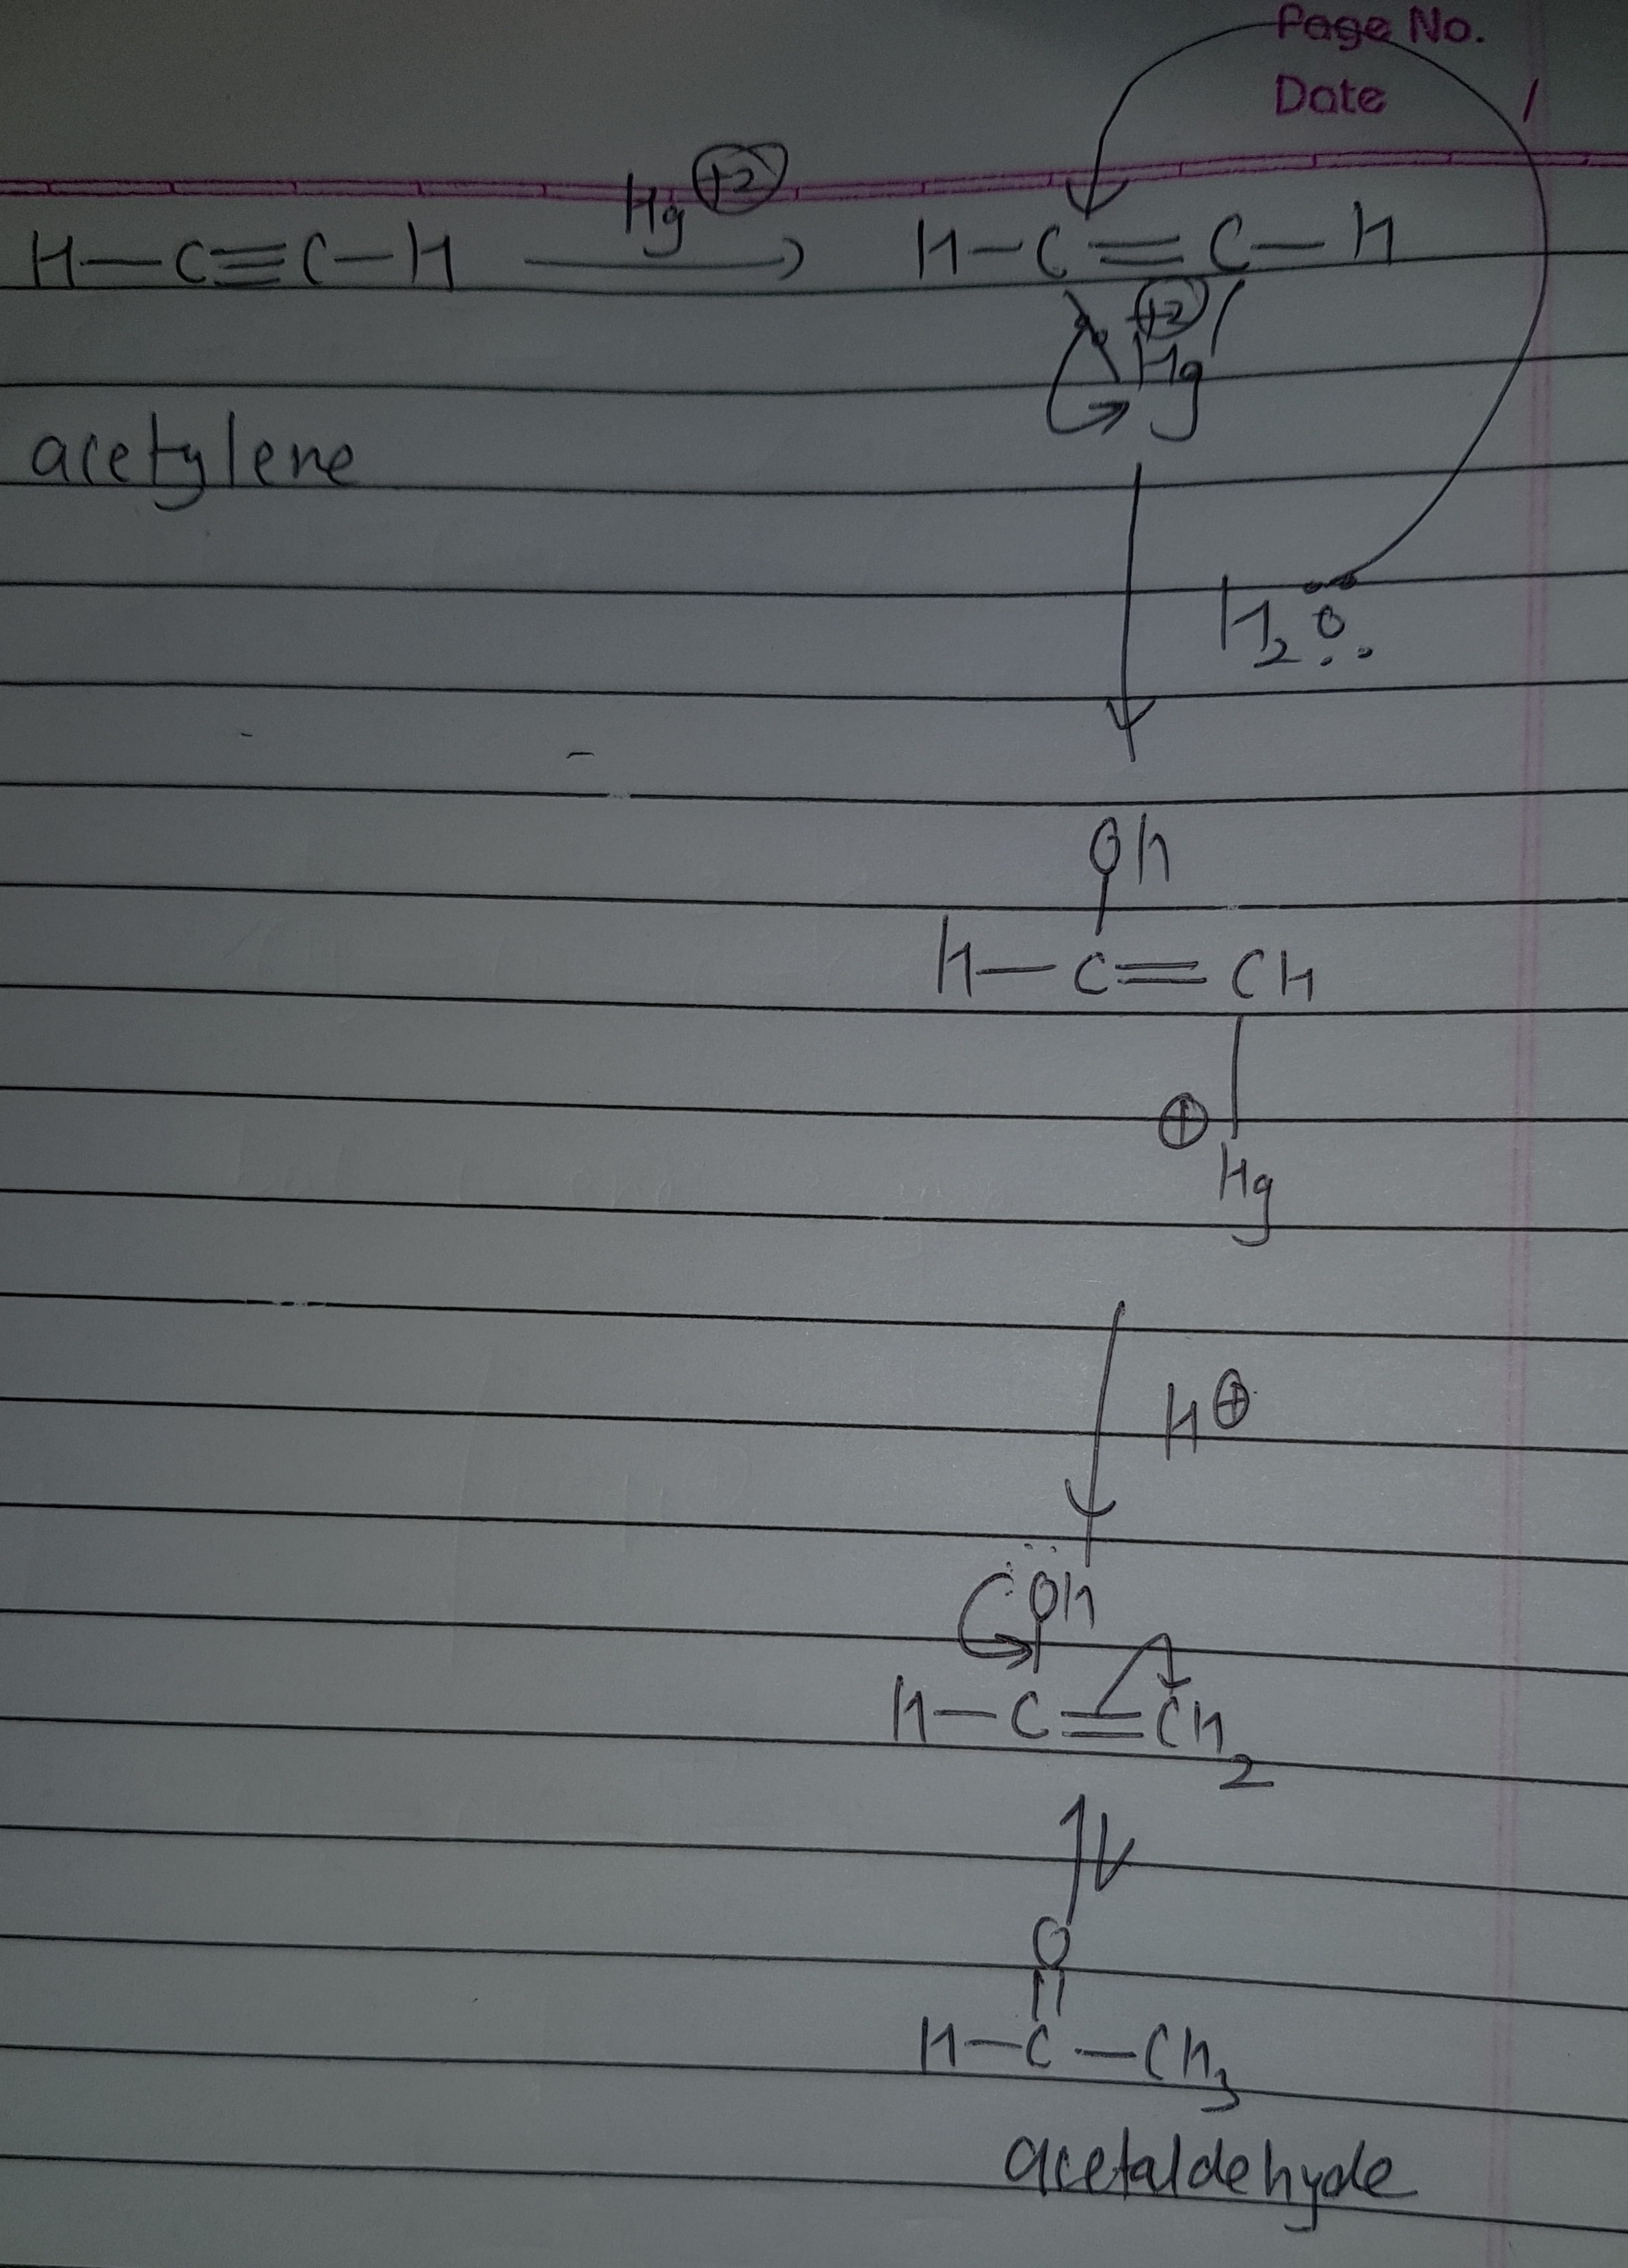 Page No.
Date /
H—C≡C—H —Hg(+2)→ H—C=C—H
(+2)
Hg
acetylene
H₂O
OH
H—C=CH
⊕
Hg
H⊕
OH
H—C=CH₂
⇅
O
||
H—C—CH₃
acetaldehyde